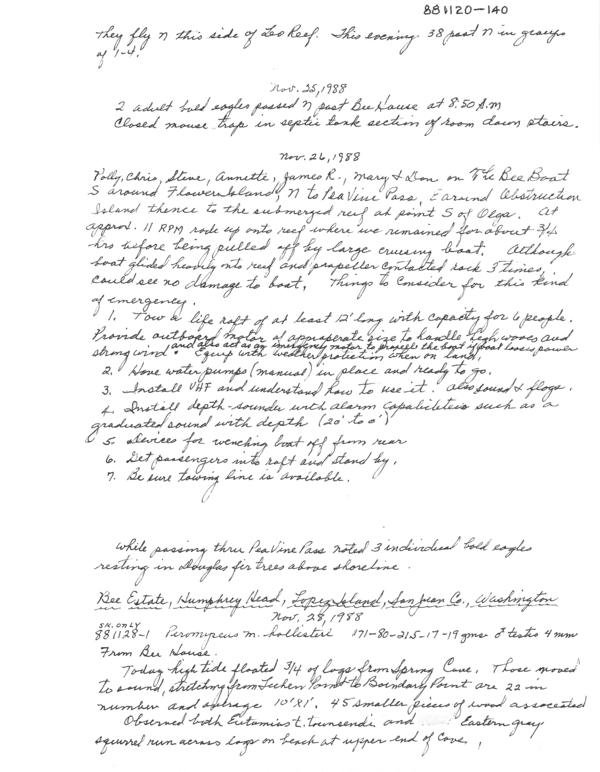 881120-140
They fly N this side of Leo Reef. This evening 38 past N in groups
of 1-4.
Nov. 25, 1988
2 adult bald eagles passed N past Bee House at 8:50 A.M
Closed mouse trap in septic tank section of room down stairs.
Nov. 26, 1988
Polly, Chris, Steve, Annette, James R., Mary & Don on The Bee Boat
S around Flower Island, N to Pea Vine Pass, E around Obstruction
Island thence to the submerged reef at point S of Olga. At
approx. 11 RPM rode up onto reef where we remained for about 3/4
hrs before being pulled off by large cruising boat. Although
boat glided heavily onto reef and propeller contacted rock 3 times,
could see no damage to boat. Things to consider for this kind
of emergency.
1. Tow a life raft of at least 12' long with capacity for 6 people.
Provide outboard motor of appropriate size to handle high waves and
and also act as an emergency motor to propell the boat if boat loses power
strong wind. Equip with weather protection when on land.
2. Have water pumps (manual) in place and ready to go.
3. Install VHF and understand how to use it. also sound & flags.
4. Install depth-sounder with alarm capabilities such as a
graduated sound with depth (20' to 0')
5. Devices for wenching boat off from rear
6. Get passengers into raft and stand by.
7. Be sure towing line is available.
While passing thru Pea Vine Pass noted 3 individual bald eagles
resting in Douglas fir trees above shoreline.
Bee Estate, Humphrey Head, Lopez Island, San Juan Co., Washington
Nov. 28, 1988
SK. ONLY
881128-1 Peromyscus m. hollisteri 171-80-215-17-19 gms ♂ testis 4 mm
From Bee House.
Today high tide floated 3/4 of logs from Spring Cove. Those moved
to sound, stretching from Lichen Point to Boundary Point are 22 in
number and average 10'X1'. 45 smaller pieces of wood associated
Observed both Eutamias t. townsendi and Eastern gray
squirrel run across logs on beach at upper end of Cove.